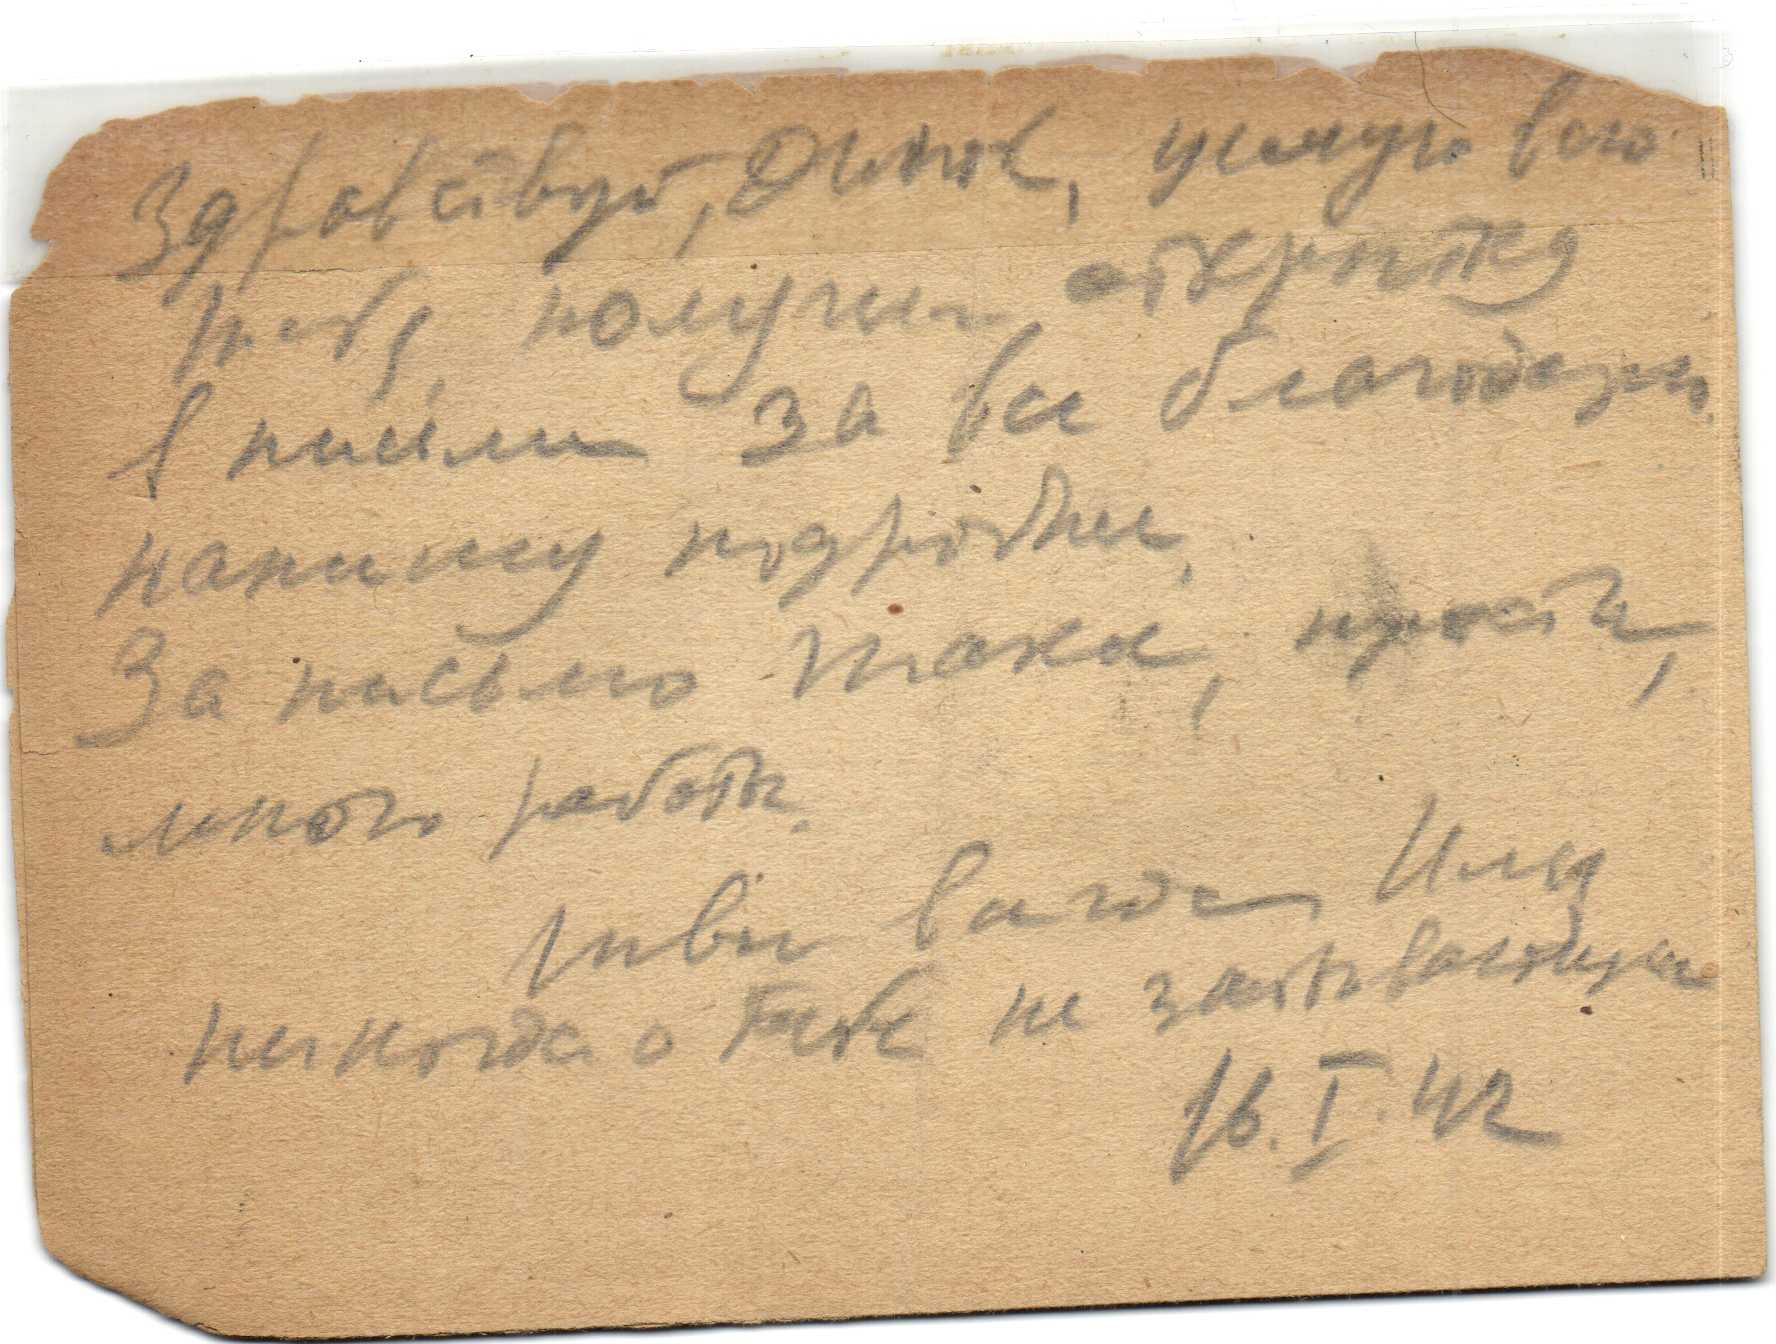 Здравствуй, Динок, целую всю
тебя, получил открытку
и письмо за все благодарю.
напишу подробно.
За письмо твоя, прости,
много работы.
твой всегда Илья
никогда о тебе не забывающий
16.I.42